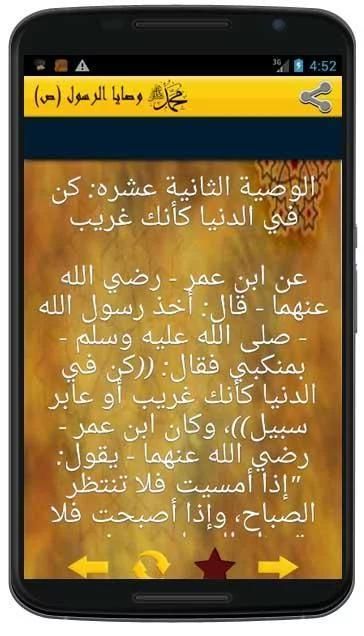 3G 4:52
وصايا الرسول (ص) محمد ﷺ
الوصية الثانية عشره: كن
في الدنيا كأنك غريب
عن ابن عمر - رضي الله
عنهما - قال: أخذ رسول الله
- صلى الله عليه وسلم -
بمنكبي فقال: ((كن في
الدنيا كأنك غريب أو عابر
سبيل))، وكان ابن عمر -
رضي الله عنهما - يقول:
"إذا أمسيت فلا تنتظر
الصباح، وإذا أصبحت فلا